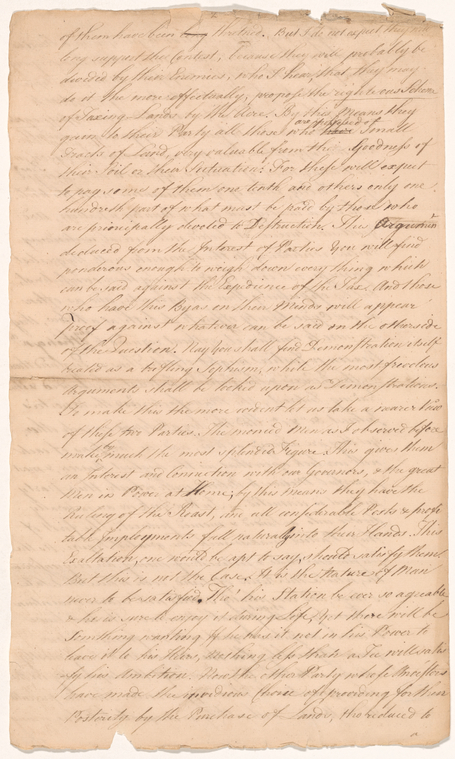 of them have been thrifty. But I do not expect they will
long support the Contest, because they will probably be
divided by their Enemies, who I hear, that they may
do it the more effectually, propose the righteous Scheme
of Taxing Lands by the Acre. By this Means they
gain to their Party all those who are possessed of Small
Tracts of Land, very valuable from the Goodness of
their Soil or their Situation: For these will expect
to pay some of them one tenth, and others only one
hundredth part of what must be paid by those who
are principally devoted to Destruction. This Argument
deduced from the Interest of Parties you will find
ponderous enough to weigh down every thing which
can be said against the Expedience of the Tax. And those
who have this Byas on their Minds will appear
Proof against whatever can be said on the other side
of the Question. Nay you shall find Demonstration itself
treated as a trifling Sophism, while the most frivolous
Arguments shall be looked upon as Demonstrations.
To make this the more evident let us take a nearer View
of these two Parties. The monied Men as I observed before
make much the most splendid Figure. This gives them
an Interest and Connection with our Governors, & the great
Men in Power at Home; by this means they have the
Ruling of the Roast, and all considerable Posts & profi
table Employments fall naturally into their Hands. This
Exaltation, one would be apt to say, should satisfy them.
But this is not the Case. It is the Nature of Man
never to be satisfied. Tho' his Station be ever so agreeable
& he is sure to enjoy it during Life, yet there will be
Something wanting if he has it not in his Power to
have it to his Heirs; Nothing less than a Fee will satis
fy his Ambition. Now the other Party whose Ancestors
have made the invidious Choice of providing for their
Posterity by the Purchase of Lands, tho reduced to